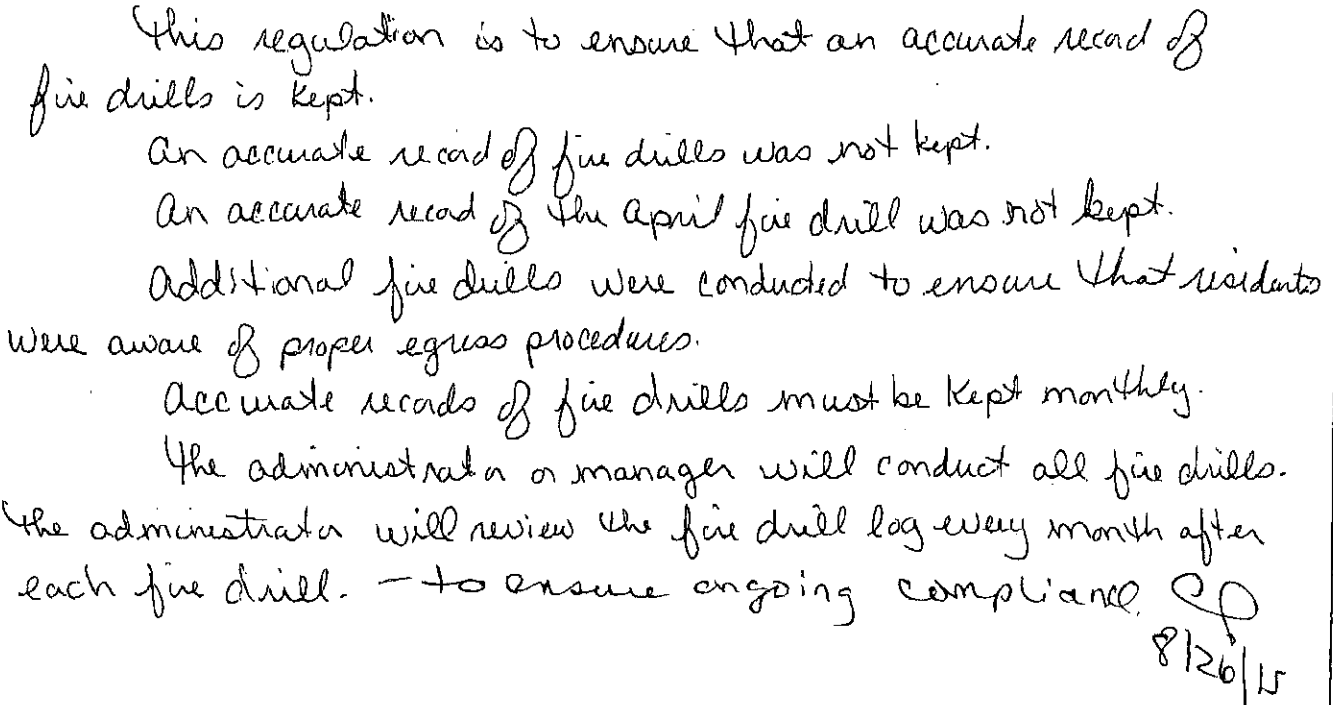 This regulation is to ensure that an accurate record of
fire drills is kept.
An accurate record of fire drills was not kept.
An accurate record of the April fire drill was not kept.
Additional fire drills were conducted to ensure that residents
were aware of proper egress procedures.
Accurate records of fire drills must be kept monthly.
The administrator or manager will conduct all fire drills.
The administrator will review the fire drill log every month after
each fire drill. – to ensure ongoing compliance.
8/26/15